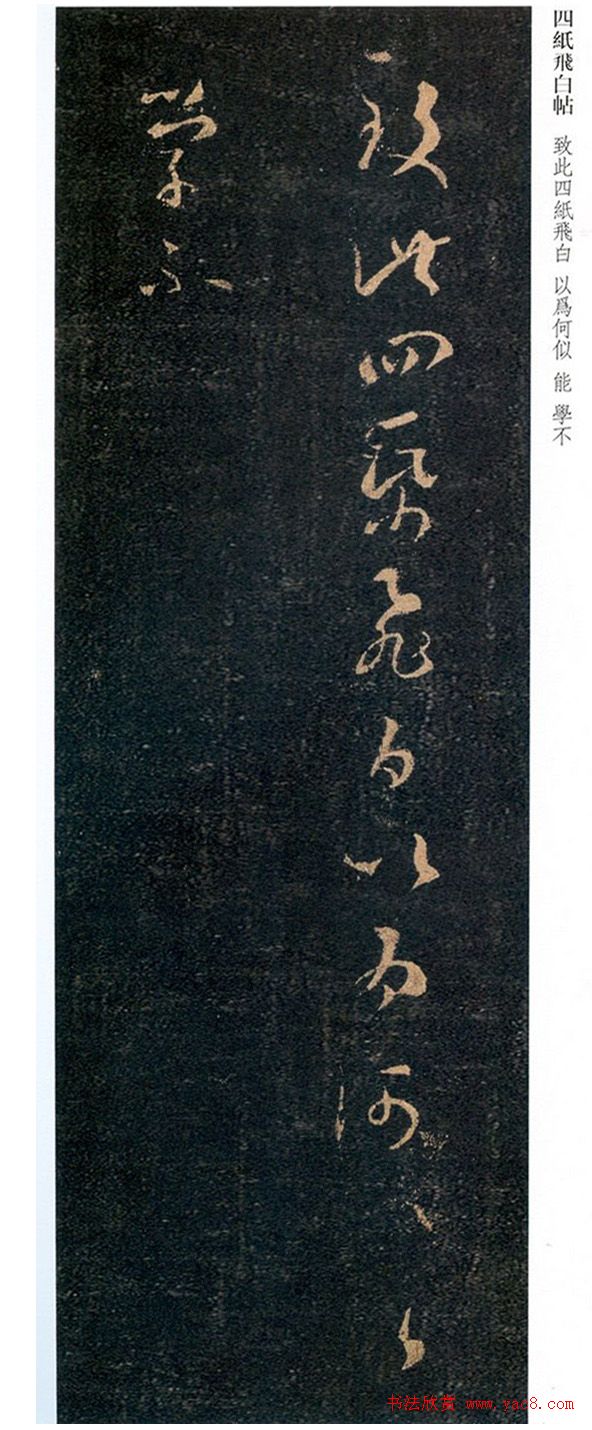 四紙飛白帖 致此四紙飛白 以爲何似 能 學不
致此四紙飛白以為何
学不
书法欣赏 www.yac8.com